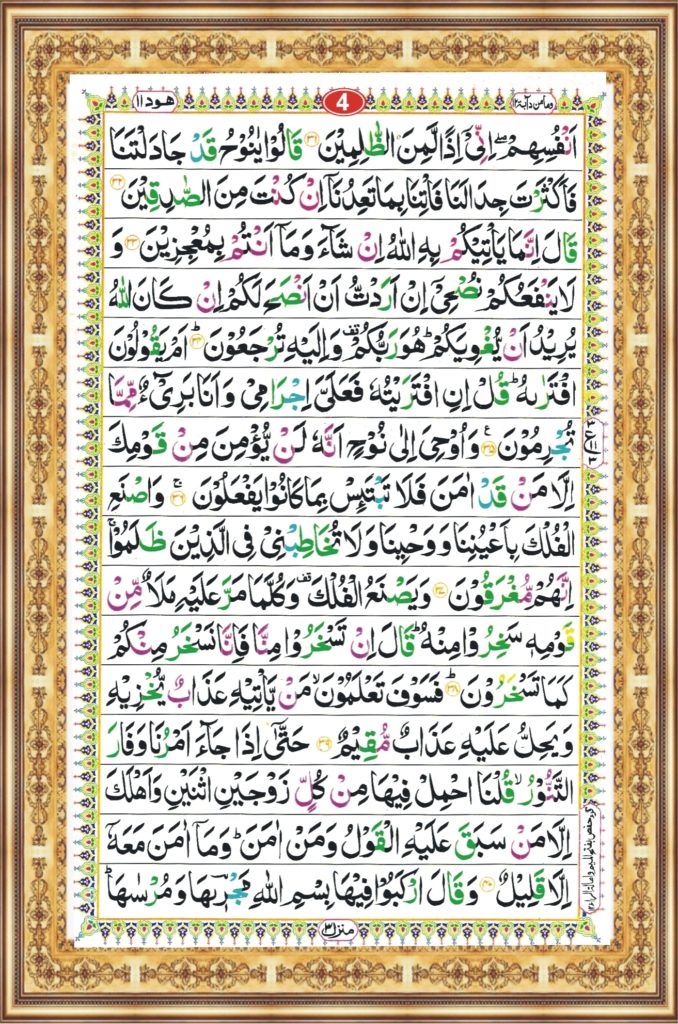 وما من دآبة ١٢ 4 هود ١١
اَنْفُسِهِمْ ۖۚ اِنِّیْۤ اِذًا لَّمِنَ الظّٰلِمِیْنَ ﴿۳۱﴾ قَالُوْا یٰنُوْحُ قَدْ جَادَلْتَنَا
فَاَكْثَرْتَ جِدَالَنَا فَاْتِنَا بِمَا تَعِدُنَاۤ اِنْ كُنْتَ مِنَ الصّٰدِقِیْنَ ﴿۳۲﴾
قَالَ اِنَّمَا یَاْتِیْكُمْ بِهِ اللّٰهُ اِنْ شَآءَ وَ مَاۤ اَنْتُمْ بِمُعْجِزِیْنَ ﴿۳۳﴾ وَ
لَا یَنْفَعُكُمْ نُصْحِیْۤ اِنْ اَرَدْتُّ اَنْ اَنْصَحَ لَكُمْ اِنْ كَانَ اللّٰهُ
یُرِیْدُ اَنْ یُّغْوِیَكُمْ ؕ هُوَ رَبُّكُمْ ۫ وَ اِلَیْهِ تُرْجَعُوْنَ ﴿۳۴﴾ اَمْ یَقُوْلُوْنَ
افْتَرٰىهُ ؕ قُلْ اِنِ افْتَرَیْتُهٗ فَعَلَیَّ اِجْرَامِیْ وَ اَنَا بَرِیْٓءٌ مِّمَّا
تُجْرِمُوْنَ ﴿۳۵﴾ ع وَ اُوْحِیَ اِلٰی نُوْحٍ اَنَّهٗ لَنْ یُّؤْمِنَ مِنْ قَوْمِكَ
اِلَّا مَنْ قَدْ اٰمَنَ فَلَا تَبْتَىِٕسْ بِمَا كَانُوْا یَفْعَلُوْنَ ﴿۳۶﴾ وَ اصْنَعِ
الْفُلْكَ بِاَعْیُنِنَا وَ وَحْیِنَا وَ لَا تُخَاطِبْنِیْ فِی الَّذِیْنَ ظَلَمُوْا ۚ
اِنَّهُمْ مُّغْرَقُوْنَ ﴿۳۷﴾ وَ یَصْنَعُ الْفُلْكَ ۫ وَ كُلَّمَا مَرَّ عَلَیْهِ مَلَاٌ مِّنْ
قَوْمِهٖ سَخِرُوْا مِنْهُ ؕ قَالَ اِنْ تَسْخَرُوْا مِنَّا فَاِنَّا نَسْخَرُ مِنْكُمْ
كَمَا تَسْخَرُوْنَ ﴿۳۸﴾ؕ فَسَوْفَ تَعْلَمُوْنَ ۙ مَنْ یَّاْتِیْهِ عَذَابٌ یُّخْزِیْهِ
وَ یَحِلُّ عَلَیْهِ عَذَابٌ مُّقِیْمٌ ﴿۳۹﴾ حَتّٰۤی اِذَا جَآءَ اَمْرُنَا وَ فَارَ
التَّنُّوْرُ ۙ قُلْنَا احْمِلْ فِیْهَا مِنْ كُلٍّ زَوْجَیْنِ اثْنَیْنِ وَ اَهْلَكَ
اِلَّا مَنْ سَبَقَ عَلَیْهِ الْقَوْلُ وَ مَنْ اٰمَنَ ؕ وَ مَاۤ اٰمَنَ مَعَهٗۤ
اِلَّا قَلِیْلٌ ﴿۴۰﴾ وَ قَالَ ارْكَبُوْا فِیْهَا بِسْمِ اللّٰهِ مَجْرٖىهَا وَ مُرْسٰىهَا ؕ
منزل ۳